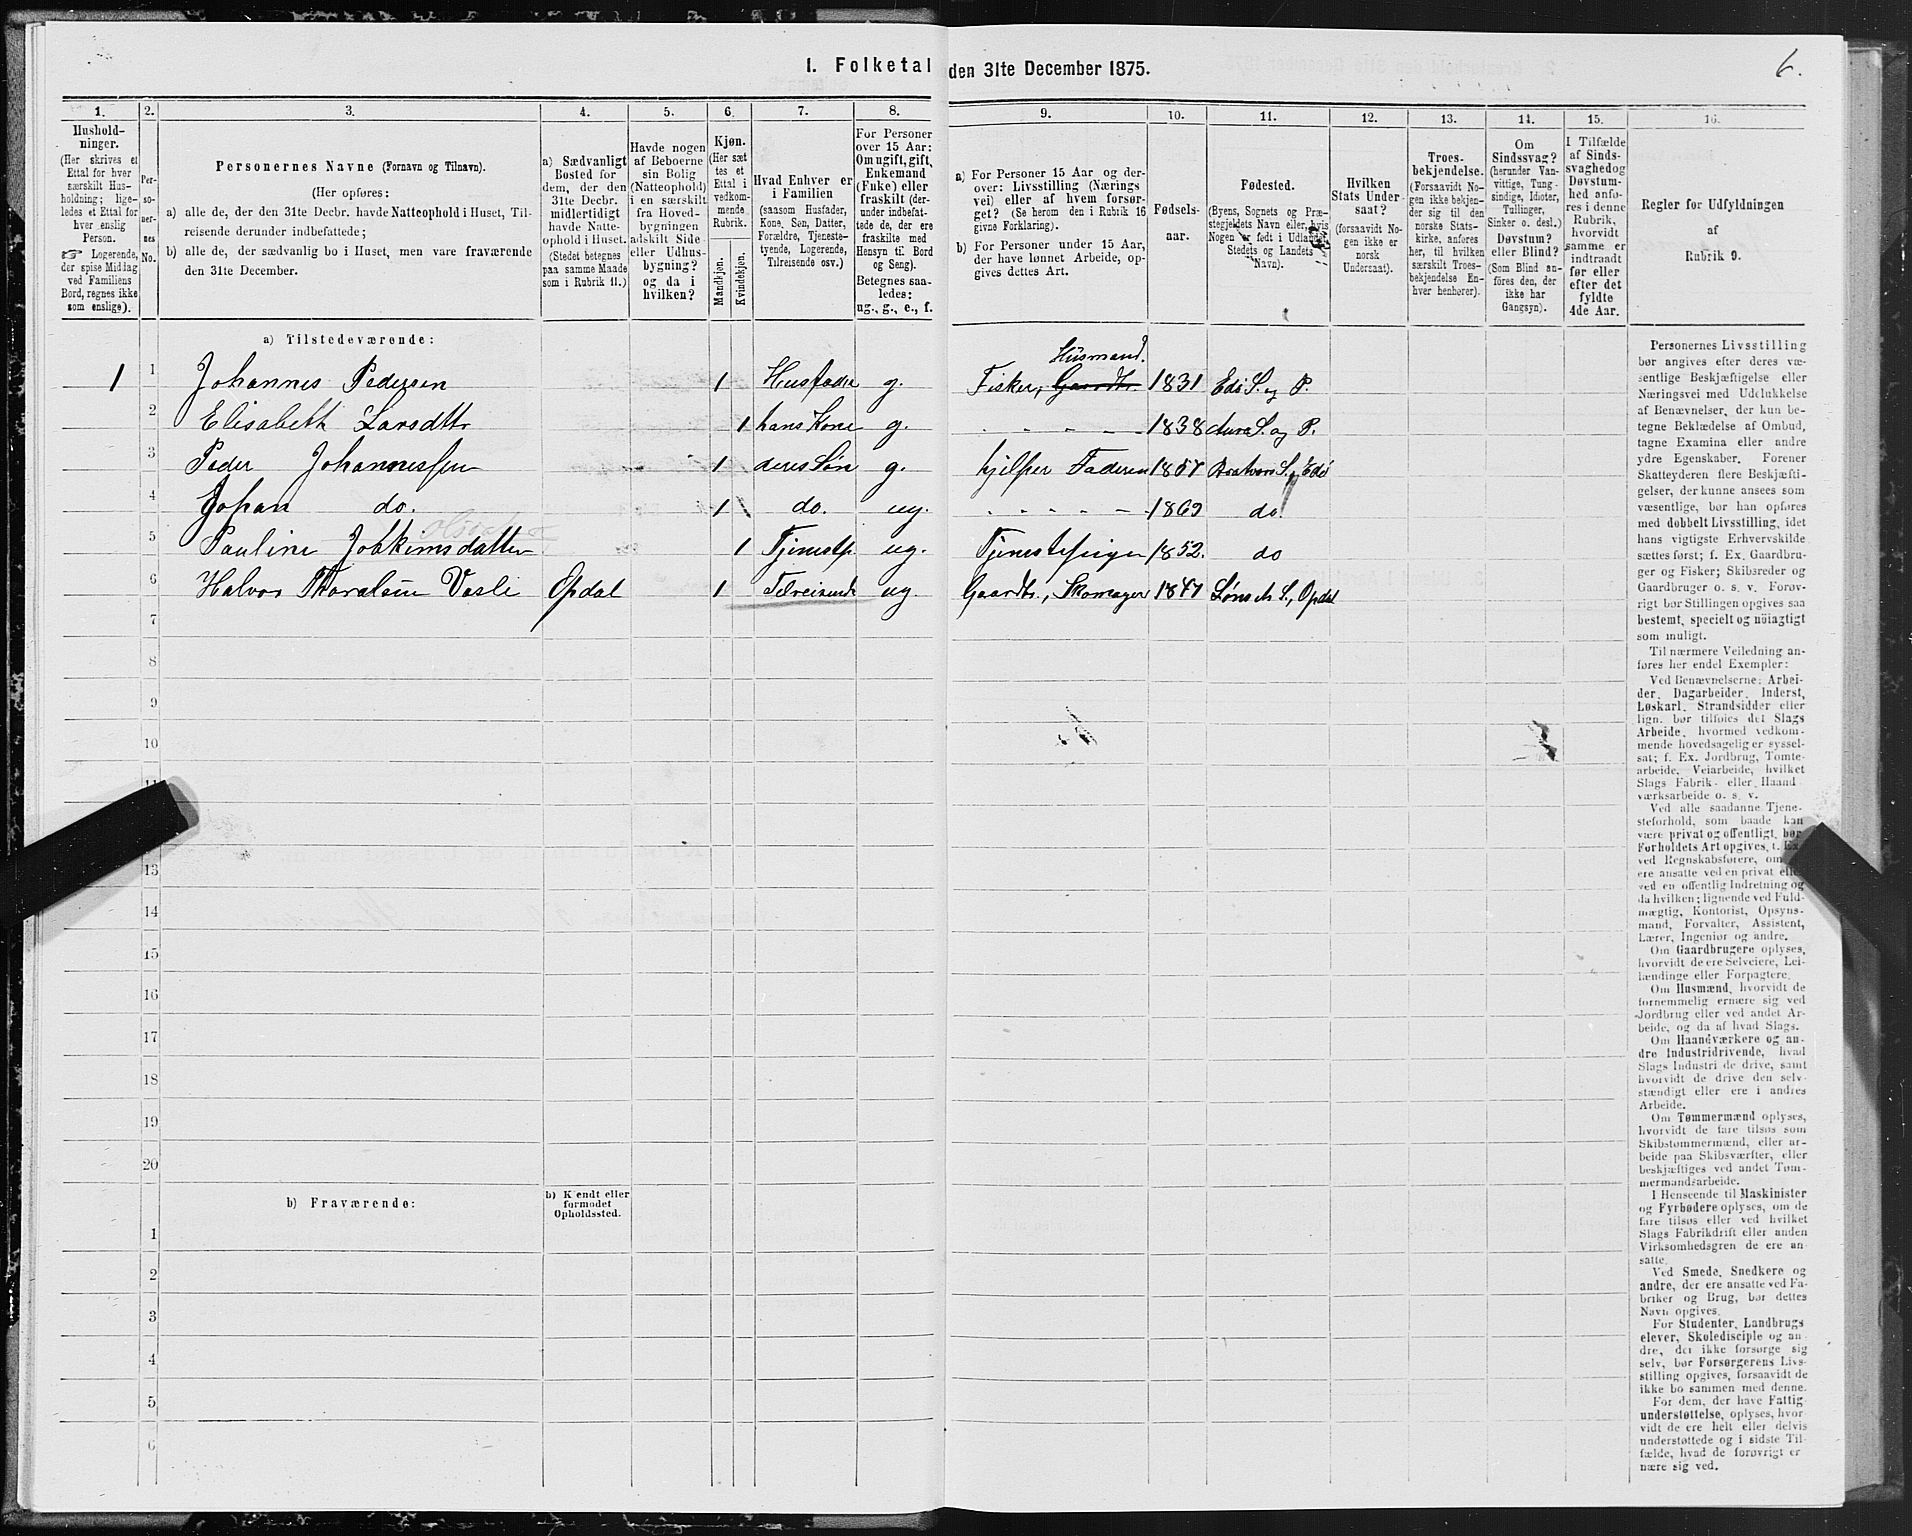 1. Folketal den 31te December 1875.
6.
1. 2. 3. 4. 5. 6. 7. 8. 9. 10. 11. 12. 13. 14. 15. 16.
Hushold-
ninger.
(Her skrives et
Ettal for hver
særskilt Hus-
holdning; lige-
ledes et Ettal for
hver enslig
Person.
☞ Logerende,
der spise Middag
ved Familiens
Bord, regnes ikke
som enslige).
Per-
so-
ner-
nes
No.
Personernes Navne (Fornavn og Tilnavn).
(Her opføres:
a) alle de, der den 31te Decbr. havde Natteophold i Huset, Til-
reisende derunder indbefattede;
b) alle de, der sædvanlig bo i Huset, men vare fraværende
den 31te December.
a) Sædvanligt
Bosted for
dem, der den
31te Decbr.
midlertidigt
havde Natte-
ophold i Huset.
(Stedet betegnes
paa samme Maade
som i Rubrik 11.)
Havde nogen
af Beboerne
sin Bolig
(Natteophold)
i en særskilt
fra Hoved-
bygningen
adskilt Side-
eller Udhus-
bygning?
og da i
hvilken?
Kjøn.
(Her sæt
tes et
Ettal i
vedkom-
mende
Rubrik.
Mandkjøn.
Kvindekjøn.
Hvad Enhver er
i Familien
(saasom Husfader,
Kone, Søn, Datter,
Forældre, Tjeneste-
tyende, Logerende,
Tilreisende osv.)
For Personer
over 15 Aar:
Om ugift, gift,
Enkemand
(Enke) eller
fraskilt (der-
under indbefat-
tede de, der ere
fraskilte med
Hensyn til Bord
og Seng).
Betegnes saa-
ledes:
ug., g., e., f.
a) For Personer 15 Aar og der-
over: Livsstilling (Nærings
vei) eller af hvem forsør-
get? (Se herom den i Rubrik 16
givne Forklaring).
b) For Personer under 15 Aar,
der have lønnet Arbeide, op-
gives dettes Art.
Fødsels-
aar.
Fødested.
(Byens, Sognets og Præ-
stegjeldets Navn eller, hvis
Nogen er født i Udlandet,
Stedets og Landets
Navn).
Hvilken
Stats Under-
saat?
(forsaavidt No-
gen ikke er
norsk
Undersaat).
Troes-
bekjendelse.
(Forsaavidt No-
gen ikke bekjen-
der sig til den
norske Stats-
kirke, anføres
her, til hvilken
særskilt Troes-
bekjendelse En-
hver henhører).
Om
Sindssvag?
(herunder Van-
vittige, Tung-
sindige, Idioter,
Tullinger,
Sinker o. desl.)
Døvstum?
eller Blind?
(Som Blind an-
føres den, der
ikke har
Gangsyn).
I Tilfælde
af Sinds-
svaghedog
Døvstum-
hed anfø-
res i denne
Rubrik,
hvorvidt
samme er
indtraadt
før eller
efter det
fyldte
4de Aar.
Regler for Udfyldningen
af
Rubrik 9.
a) Tilstedeværende:
Husmand.
1 1 Johannes Pedersen 1 Husfader g. Fisker, Gaardbr. 1831 Edø S. og P.
2 Elisabeth Larsdttr 1 hans Kone g. - - - - - 1838 Aure S. og P.
3 Peder Johannessen 1 deres Søn g. hjelper Faderen 1857 Bratvær S., Edø
4 Johan do. 1 do. ug. - - - - - 1869 do.
5 Pauline Joakimsdatter 1 Tjenestp. ug. Tjenestepige 1852. do
6 Halvor Thoralsen Vasli Opdal 1 Tilreisende ug Gaardbr., Skomager 1847 Lønset S., Opdal
7
8
9
10
11
13
14
15
16
17
18
19
20
b) Fraværende:
b) Kendt eller
formodet
Opholdssted.
1
2
3
4
5
6
Personernes Livsstilling
bør angives efter deres væ-
sentlige Beskjæftigelse eller
Næringsvei med Udelukkelse
af Benævnelser, der kun be-
tegne Beklædelse af Ombud,
tagne Examina eller andre
ydre Egenskaber. Forener
Skatteyderen flere Beskjæfti-
gelser, der kunne ansees som
væsentlige, bør han opføres
med dobbelt Livsstilling, idet
hans vigtigste Erhvervskilde
sættes først; f. Ex. Gaardbru-
ger og Fisker; Skibsreder og
Gaardbruger o. s. v. Forøv-
rigt bør Stillingen opgives saa
bestemt, specielt og nöiagtigt
som muligt.
Til nærmere Veiledning an-
føres her endel Exempler:
Ved Benævnelserne: Arbei-
der, Dagarbeider, Inderst,
Løskarl, Strandsidder eller
lign. bør tilføies det Slags
Arbeide, hvormed vedkom-
mende hovedsagelig er syssel-
sat; f. Ex. Jordbrug, Tomte-
arbeide, Veiarbeide, hvilket
Slags Fabrik- eller Haand
værksarbeide o. s. v.
Ved alle saadanne Tjene-
steforhold, som baade kan
være privat og offentligt, bør
Forholdets Art opgives, f. Ex.
ved Regnskabsførere, om de
ere ansatte ved en privat eller
ved en offentlig Indretning og
da hvilken; lignende ved Fuld-
mægtig, Kontorist, Opsyns-
mand, Forvalter, Assistent,
Lærer, Ingeniør og andre.
Om Gaardbrugere oplyses,
hvorvidt de ere Selveiere, Lei-
lændinge eller Forpagtere.
Om Husmænd, hvorvidt de
fornemmelig ernære sig ved
Jordbrug eller ved andet Ar-
beide, og da af hvad Slags.
Om Haandværkere og an-
dre Industridrivende, hvad
Slags Industri de drive, samt
hvorvidt de drive den selv-
stændigt eller ere i andres
Arbeide.
Om Tømmermænd oplyses,
hvorvidt de fare tilsøs som
Skibstømmermænd, eller ar-
beide paa Skibsværfter, eller
beskjæftiges ved andet Tøm-
mermandsarbeide.
I Henseende til Maskinister
og Fyrbødere oplyses, om de
fare tilsøs eller ved hvilket
Slags Fabrikdrift eller anden
Virksomhedsgren de ere an-
satte.
Ved Smede, Snedkere og
andre, der ere ansatte ved Fa-
briker og Brug, bør dettes
Navn opgives.
For Studenter, Landbrugs
elever, Skoledisciple og an-
dre, der ikke forsørge sig
selv, bør Forsørgerens Livs-
stilling opgives, forsaavidt de
ikke bo sammen med denne.
For dem, der have Fattig-
understøttelse, oplyses, hvor-
vidt de ere helt eller delvis
understøttede og i sidste Til-
fælde, hvad de forøvrigt er
nære sig ved.